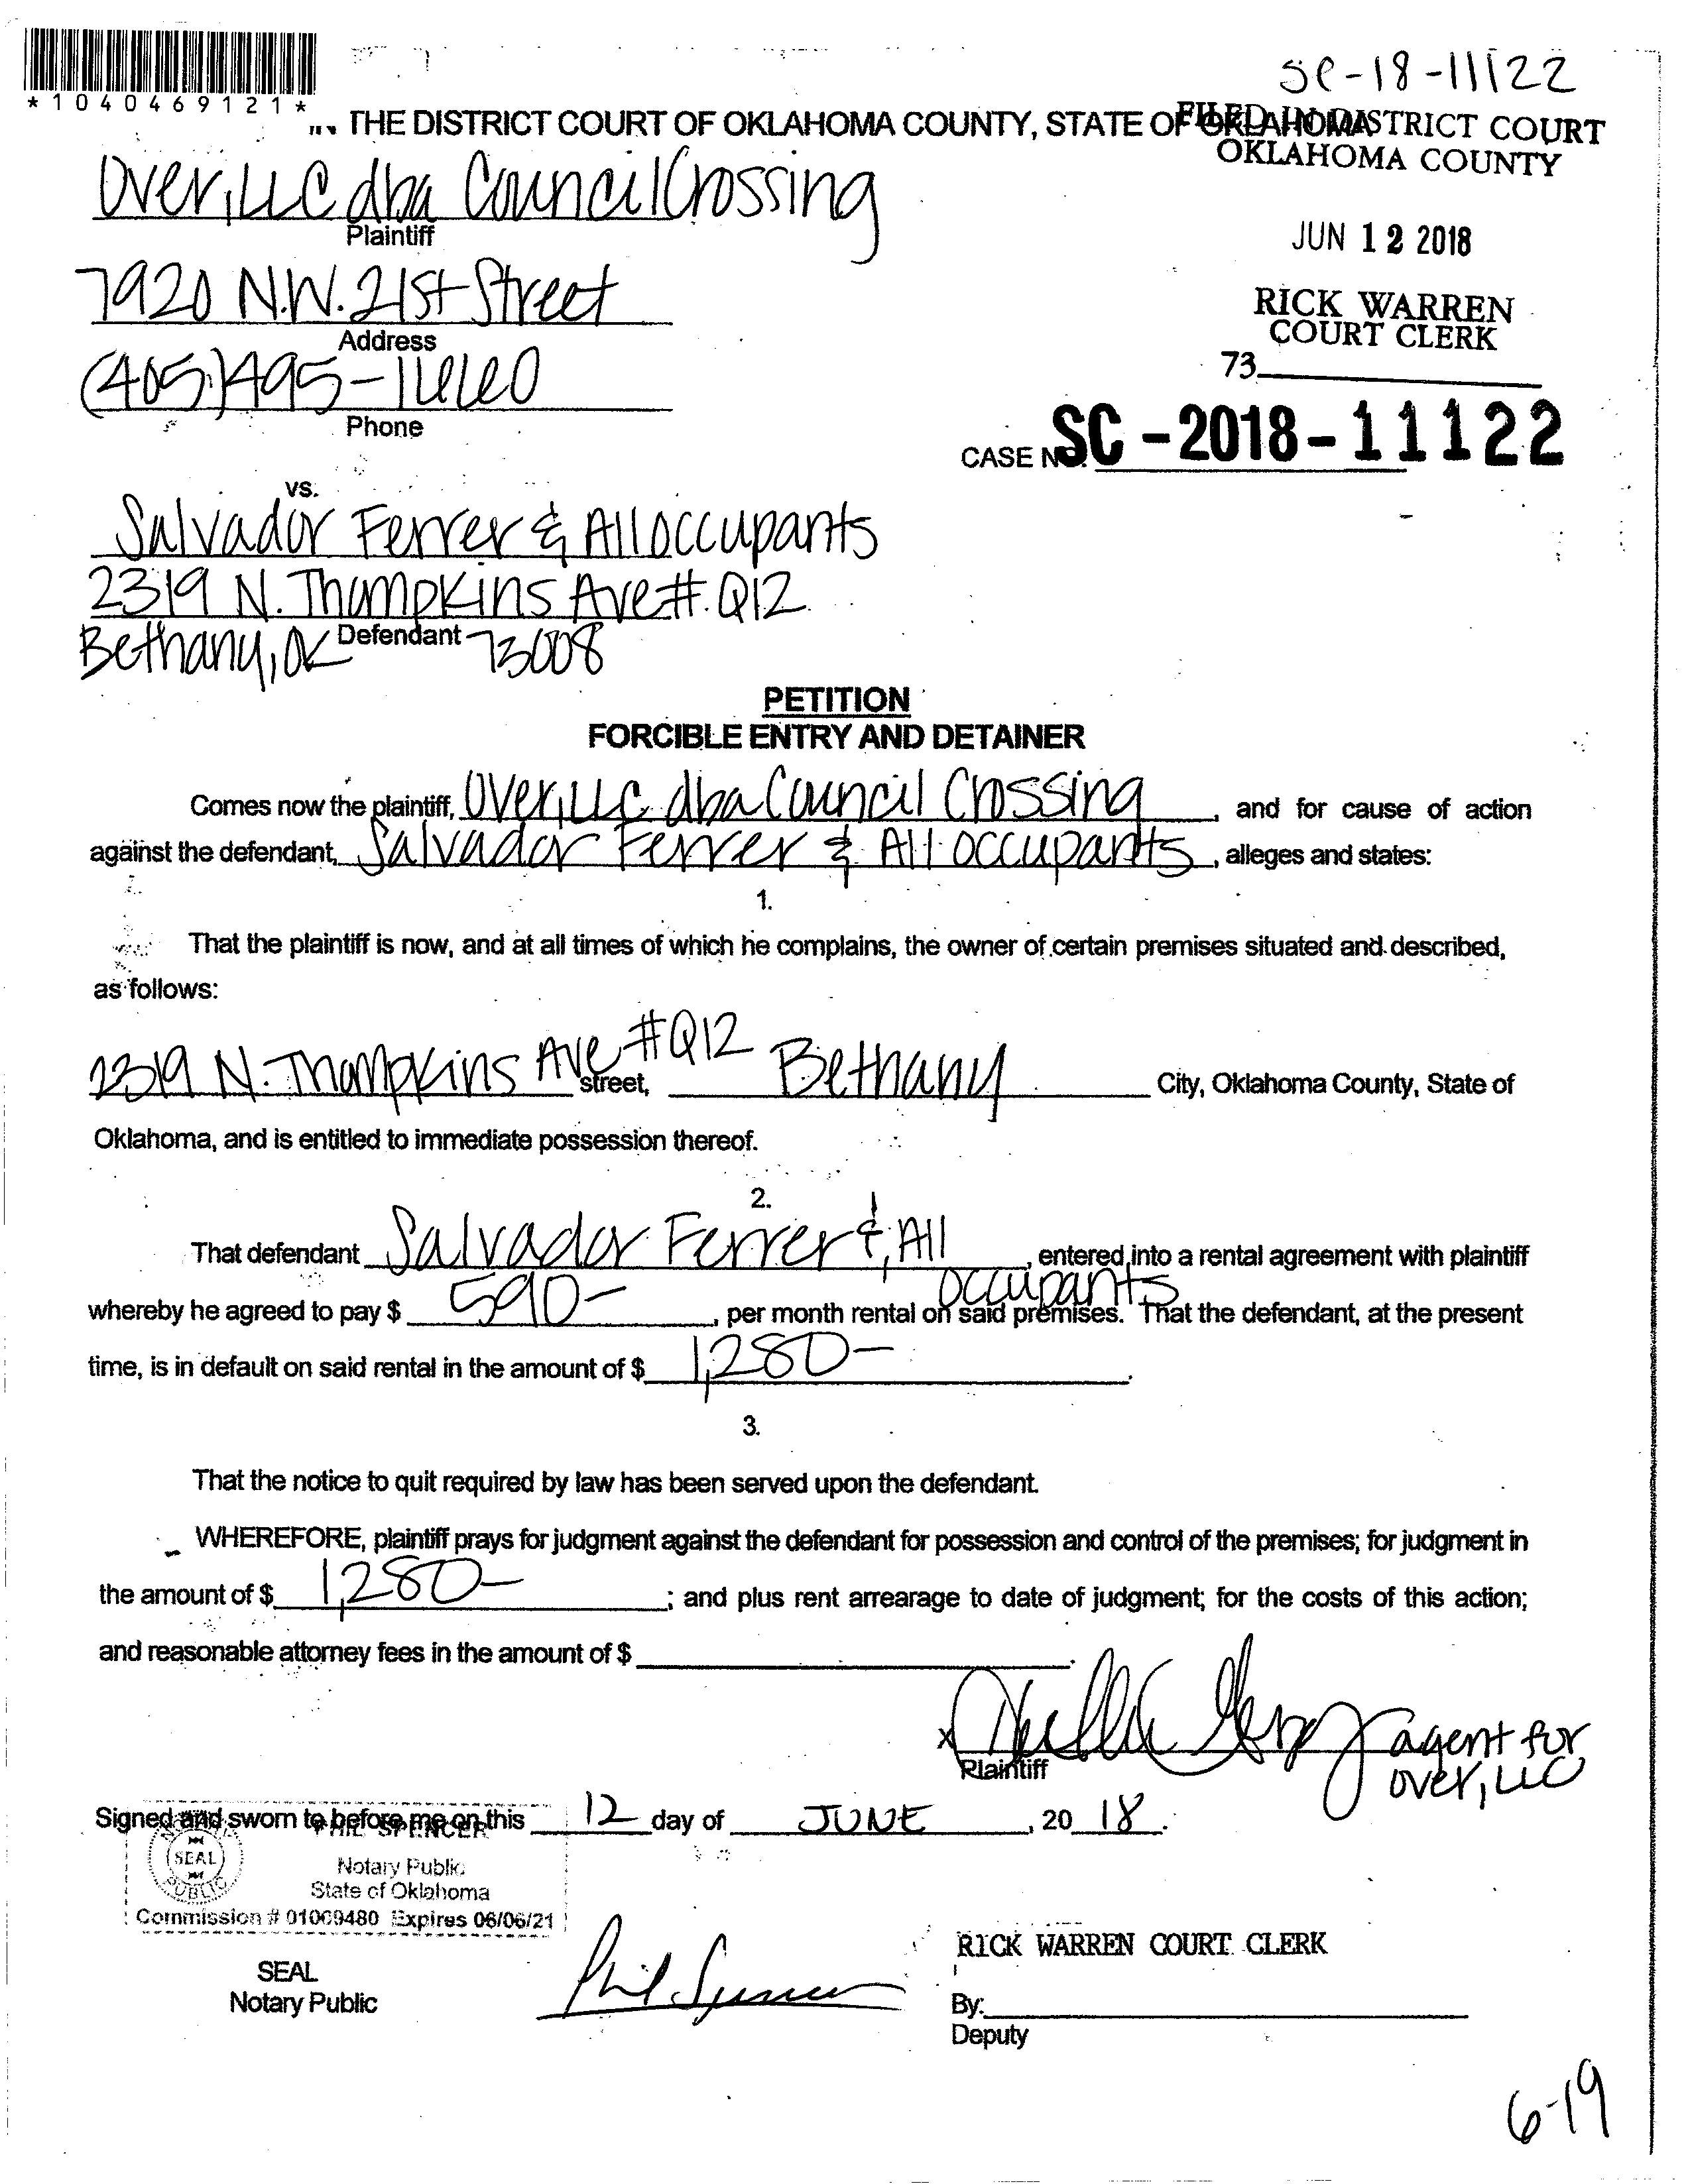 *1040469121*
SC-18-11122
THE DISTRICT COURT OF OKLAHOMA COUNTY, STATE OF OKLAHOMA
FILED IN DISTRICT COURT
OKLAHOMA COUNTY
Over, LLC dba Council Crossing
Plaintiff
JUN 12 2018
7920 N.W. 21st Street
Address
RICK WARREN
COURT CLERK
73
(405) 495-1660
Phone
CASE NO. SC-2018-11122
vs.
Salvador Ferrer & All occupants
2319 N. Thompkins Ave #. Q12
Bethany, OK 73008
Defendant
PETITION
FORCIBLE ENTRY AND DETAINER
Comes now the plaintiff, Over, LLC dba Council Crossing, and for cause of action
against the defendant, Salvador Ferrer & All occupants, alleges and states:
1.
That the plaintiff is now, and at all times of which he complains, the owner of certain premises situated and described,
as follows:
2319 N. Thompkins Ave #Q12 street, Bethany City, Oklahoma County, State of
Oklahoma, and is entitled to immediate possession thereof.
2.
That defendant Salvador Ferrer & All occupants, entered into a rental agreement with plaintiff
whereby he agreed to pay $ 590-, per month rental on said premises. That the defendant, at the present
time, is in default on said rental in the amount of $ 1,280-.
3.
That the notice to quit required by law has been served upon the defendant.
WHEREFORE, plaintiff prays for judgment against the defendant for possession and control of the premises; for judgment in
the amount of $ 1,280-; and plus rent arrearage to date of judgment; for the costs of this action;
and reasonable attorney fees in the amount of $
x agent for
Over, LLC
Plaintiff
Signed and sworn to before me on this 12 day of JUNE, 2018.
PHIL SPENCER
SEAL
Notary Public
State of Oklahoma
Commission # 01009480 Expires 06/06/21
SEAL
Notary Public
Phil Spencer
RICK WARREN COURT CLERK
By:
Deputy
6-19